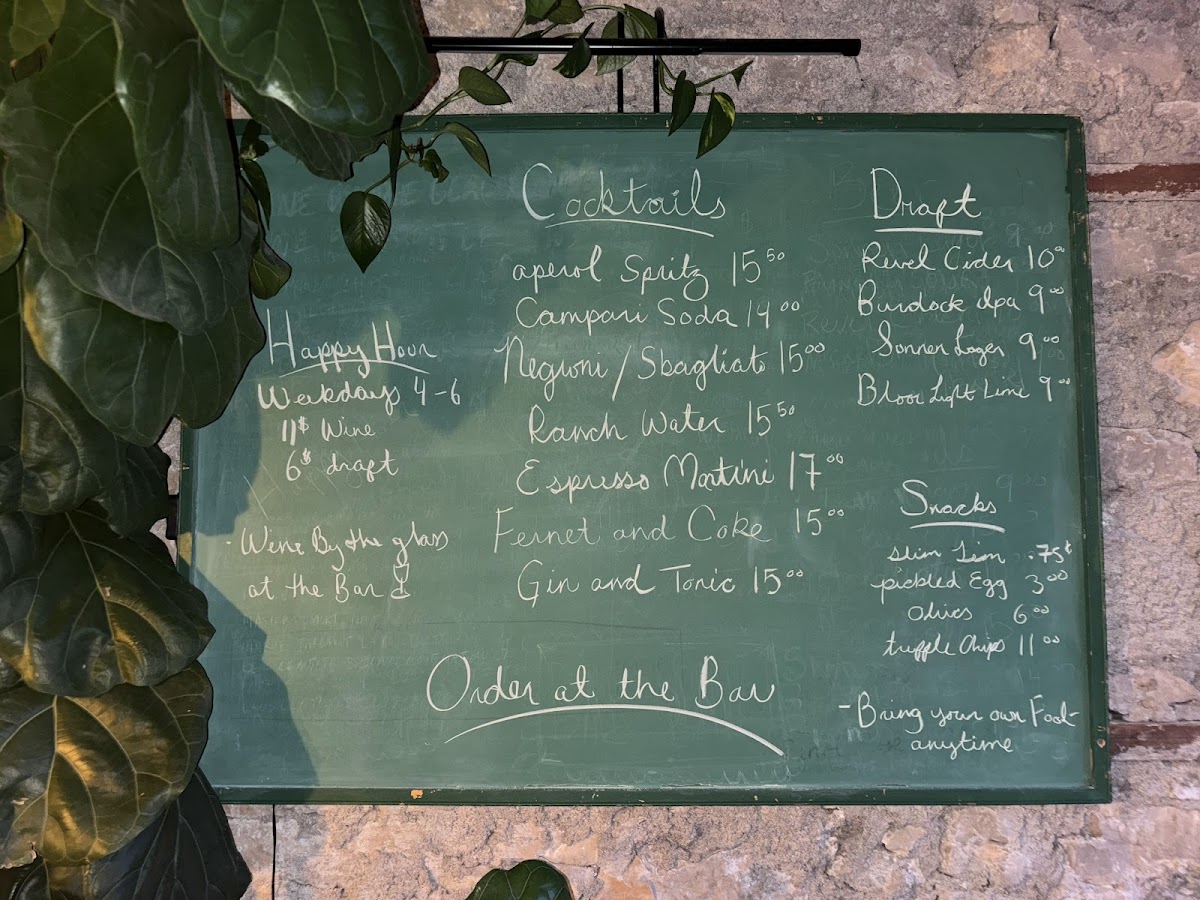 Happy Hour
Weekdays 4-6
11$ Wine
6$ draft
- Wine By the glass
at the Bar
Cocktails
aperol Spritz 15 50
Campari Soda 14 00
Negroni / Sbagliato 15 00
Ranch Water 15 50
Espresso Martini 17 00
Fernet and Coke 15 00
Gin and Tonic 15 00
Order at the Bar
Draft
Revel Cider 10 00
Burdock Ipa 9 00
Sonnen Lager 9 00
Bloor Light Lime 9 00
Snacks
Slim Jim .75¢
pickled Egg 3 00
Olives 6 00
truffle Chips 11 00
- Bring your own Food -
anytime